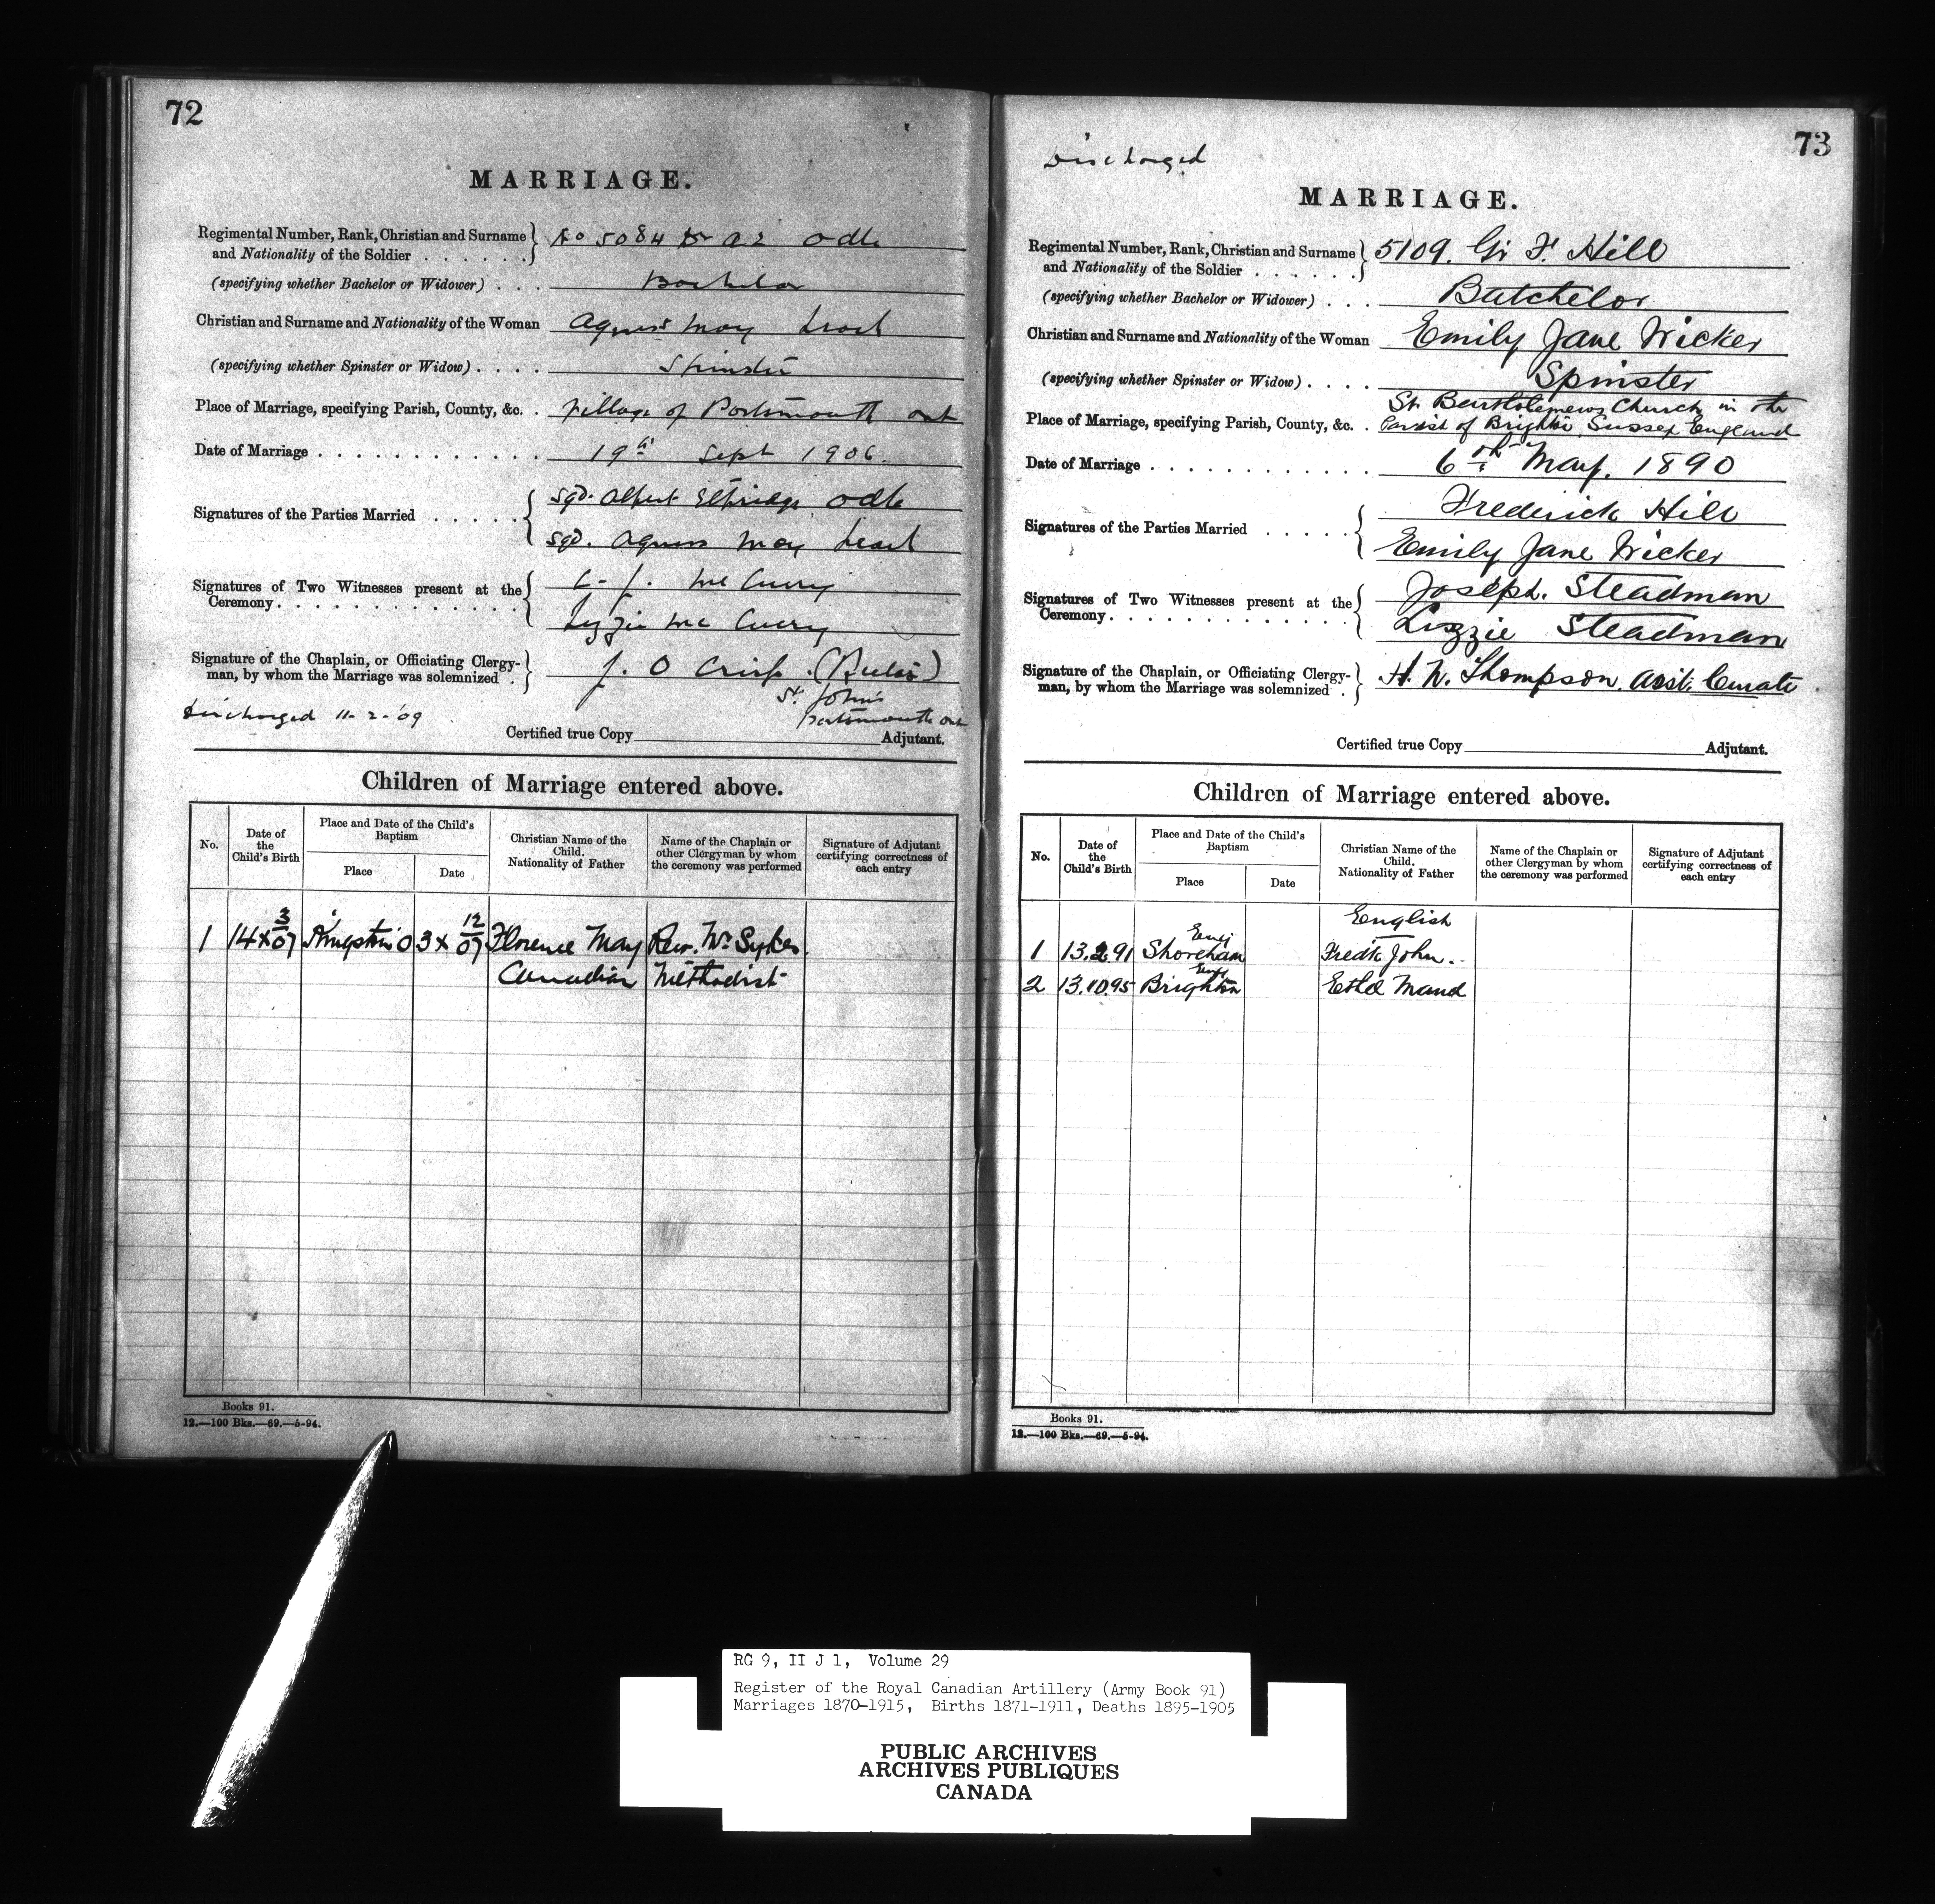 72
MARRIAGE.
Regimental Number, Rank, Christian and Surname
and Nationality of the Soldier . . . . . .
No 5084 Br A2 Odle
(specifying whether Bachelor or Widower) . . .
Bachelor
Christian and Surname and Nationality of the Woman
Agness May
(specifying whether Spinster or Widow) . . . .
Spinster
Place of Marriage, specifying Parish, County, &c. .
Village of Portsmouth Ont
Date of Marriage . . . . . . . . . . . .
19th Sept 1906.
Signatures of the Parties Married . . . . .
sgd. Albert Odle
sgd. Agness May
Signatures of Two Witnesses present at the
Ceremony. . . . . . . . . . . . . .
Mc Curry
Lizzie Mc Curry
Signature of the Chaplain, or Officiating Clergy-
man, by whom the Marriage was solemnized .
J. O Crisp. (Rector)
St. John's
Portsmouth Ont
Discharged 11-2-'09
Certified true Copy Adjutant.
Children of Marriage entered above.
No.
Date of
the
Child's Birth
Place and Date of the Child's
Baptism
Place
Date
Christian Name of the
Child.
Nationality of Father
Name of the Chaplain or
other Clergyman by whom
the ceremony was performed
Signature of Adjutant
certifying correctness of
each entry
1 14 X 3/07 Kingston O 3 X 12/07 Florence May Rev. Wm Sykes
Canadian Methodist
Books 91.
12.—100 Bks.—69.—5-94.
73
Discharged
MARRIAGE.
Regimental Number, Rank, Christian and Surname
and Nationality of the Soldier . . . . . .
5109. Gr F. Hill
(specifying whether Bachelor or Widower) . . .
Batchelor
Christian and Surname and Nationality of the Woman
Emily Jane Wicker
(specifying whether Spinster or Widow) . . . .
Spinster
Place of Marriage, specifying Parish, County, &c. .
St. Bartholemews Church in the
Parish of Brighton, Sussex England
Date of Marriage . . . . . . . . . . . .
6th May. 1890
Signatures of the Parties Married . . . . .
Frederick Hill
Emily Jane Wicker
Signatures of Two Witnesses present at the
Ceremony. . . . . . . . . . . . . .
Joseph. Steadman
Lizzie Steadman
Signature of the Chaplain, or Officiating Clergy-
man, by whom the Marriage was solemnized .
H. N. Thompson, Asst. Curate
Certified true Copy Adjutant.
Children of Marriage entered above.
No.
Date of
the
Child's Birth
Place and Date of the Child's
Baptism
Place
Date
Christian Name of the
Child.
Nationality of Father
Name of the Chaplain or
other Clergyman by whom
the ceremony was performed
Signature of Adjutant
certifying correctness of
each entry
English
1 13.2.91 Shoreham Eng Fredk John.
2 13.10.95 Brighton Eng Ethel Maud
Books 91.
12.—100 Bks.—69.—5-94.
RG 9, II J 1, Volume 29
Register of the Royal Canadian Artillery (Army Book 91)
Marriages 1870-1915, Births 1871-1911, Deaths 1895-1905
PUBLIC ARCHIVES
ARCHIVES PUBLIQUES
CANADA